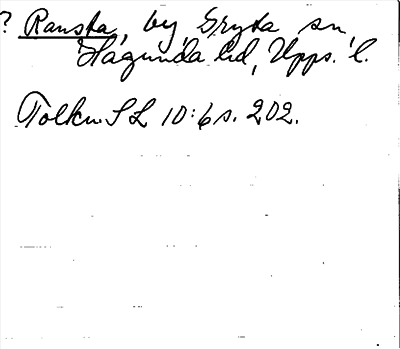 ? Ransta, by, Gryta sn,
Hagunda hd, Upps. l.
Tolkn. SL 10:6 s. 202.